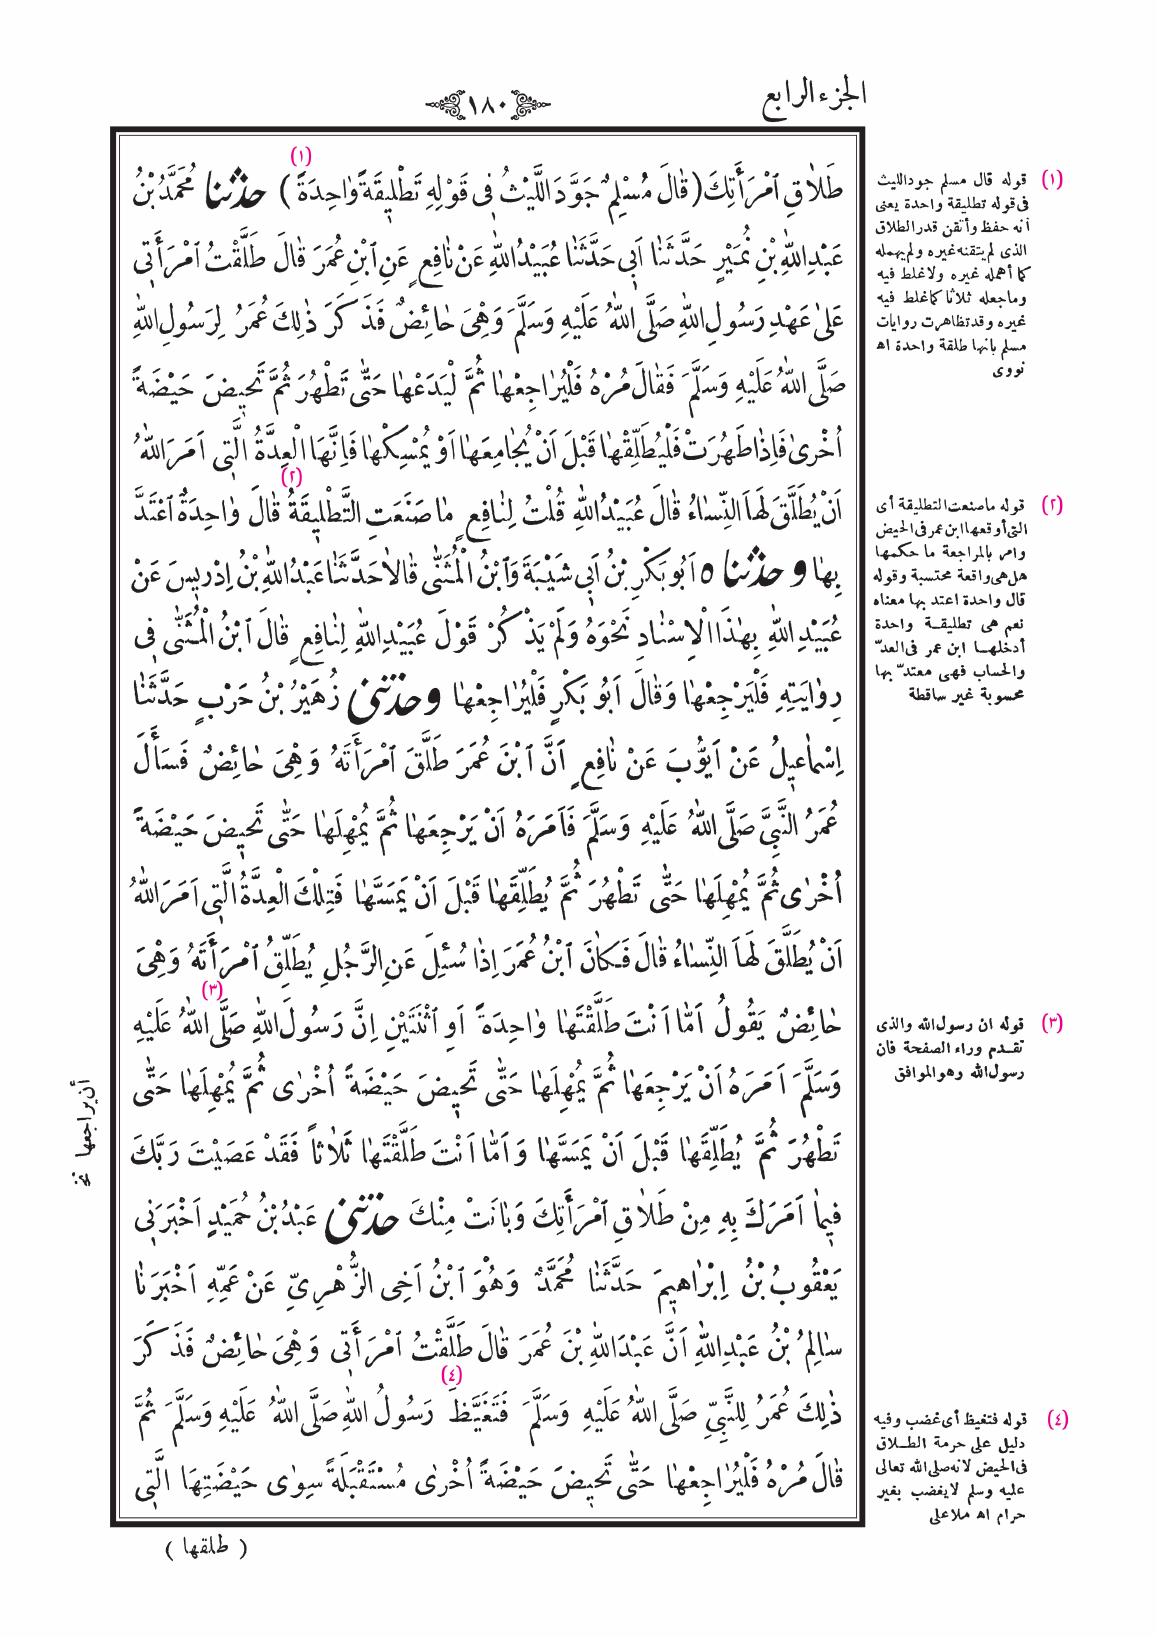 الجزء الرابع
١٨٠
طَلَاقِ امْرَأَتِكَ (قَالَ مُسْلِمٌ جَوَّدَ اللَّيْثُ فِي قَوْلِهِ تَطْلِيقَةً وَاحِدَةً) (١) حدثنا مُحَمَّدُ بْنُ
عَبْدِاللَّهِ بْنِ نُمَيْرٍ حَدَّثَنَا أَبِي حَدَّثَنَا عُبَيْدُاللَّهِ عَنْ نَافِعٍ عَنِ ابْنِ عُمَرَ قَالَ طَلَّقْتُ امْرَأَتِي
عَلَى عَهْدِ رَسُولِ اللَّهِ صَلَّى اللَّهُ عَلَيْهِ وَسَلَّمَ وَهِيَ حَائِضٌ فَذَكَرَ ذَلِكَ عُمَرُ لِرَسُولِ اللَّهِ
صَلَّى اللَّهُ عَلَيْهِ وَسَلَّمَ فَقَالَ مُرْهُ فَلْيُرَاجِعْهَا ثُمَّ لْيَدَعْهَا حَتَّى تَطْهُرَ ثُمَّ تَحِيضَ حَيْضَةً
أُخْرَى فَإِذَا طَهُرَتْ فَلْيُطَلِّقْهَا قَبْلَ أَنْ يُجَامِعَهَا أَوْ يُمْسِكْهَا فَإِنَّهَا الْعِدَّةُ الَّتِي أَمَرَ اللَّهُ
أَنْ يُطَلَّقَ لَهَا النِّسَاءُ قَالَ عُبَيْدُاللَّهِ قُلْتُ لِنَافِعٍ مَا صَنَعَتِ التَّطْلِيقَةُ (٢) قَالَ وَاحِدَةٌ اعْتَدَّ
بِهَا و حدثناه أَبُو بَكْرِ بْنُ أَبِي شَيْبَةَ وَابْنُ الْمُثَنَّى قَالَا حَدَّثَنَا عَبْدُاللَّهِ بْنُ إِدْرِيسَ عَنْ
عُبَيْدِ اللَّهِ بِهَذَا الْإِسْنَادِ نَحْوَهُ وَلَمْ يَذْكُرْ قَوْلَ عُبَيْدِاللَّهِ لِنَافِعٍ قَالَ ابْنُ الْمُثَنَّى فِي
رِوَايَتِهِ فَلْيَرْجِعْهَا وَقَالَ أَبُو بَكْرٍ فَلْيُرَاجِعْهَا وحدثني زُهَيْرُ بْنُ حَرْبٍ حَدَّثَنَا
إِسْمَاعِيلُ عَنْ أَيُّوبَ عَنْ نَافِعٍ أَنَّ ابْنَ عُمَرَ طَلَّقَ امْرَأَتَهُ وَهِيَ حَائِضٌ فَسَأَلَ
عُمَرُ النَّبِيَّ صَلَّى اللَّهُ عَلَيْهِ وَسَلَّمَ فَأَمَرَهُ أَنْ يَرْجِعَهَا ثُمَّ يُمْهِلَهَا حَتَّى تَحِيضَ حَيْضَةً
أُخْرَى ثُمَّ يُمْهِلَهَا حَتَّى تَطْهُرَ ثُمَّ يُطَلِّقَهَا قَبْلَ أَنْ يَمَسَّهَا فَتِلْكَ الْعِدَّةُ الَّتِي أَمَرَ اللَّهُ
أَنْ يُطَلَّقَ لَهَا النِّسَاءُ قَالَ فَكَانَ ابْنُ عُمَرَ إِذَا سُئِلَ عَنِ الرَّجُلِ يُطَلِّقُ امْرَأَتَهُ وَهِيَ
حَائِضٌ يَقُولُ أَمَّا أَنْتَ طَلَّقْتَهَا وَاحِدَةً أَوِ اثْنَتَيْنِ إِنَّ رَسُولَ اللَّهِ (٣) صَلَّى اللَّهُ عَلَيْهِ
وَسَلَّمَ أَمَرَهُ أَنْ يَرْجِعَهَا ثُمَّ يُمْهِلَهَا حَتَّى تَحِيضَ حَيْضَةً أُخْرَى ثُمَّ يُمْهِلَهَا حَتَّى
تَطْهُرَ ثُمَّ يُطَلِّقَهَا قَبْلَ أَنْ يَمَسَّهَا وَأَمَّا أَنْتَ طَلَّقْتَهَا ثَلَاثاً فَقَدْ عَصَيْتَ رَبَّكَ
فِيمَا أَمَرَكَ بِهِ مِنْ طَلَاقِ امْرَأَتِكَ وَبَانَتْ مِنْكَ حدثني عَبْدُ بْنُ حُمَيْدٍ أَخْبَرَنِي
يَعْقُوبُ بْنُ إِبْرَاهِيمَ حَدَّثَنَا مُحَمَّدٌ وَهُوَ ابْنُ أَخِي الزُّهْرِيِّ عَنْ عَمِّهِ أَخْبَرَنَا
سَالِمُ بْنُ عَبْدِاللَّهِ أَنَّ عَبْدَاللَّهِ بْنَ عُمَرَ قَالَ طَلَّقْتُ امْرَأَتِي وَهِيَ حَائِضٌ فَذَكَرَ
ذَلِكَ عُمَرُ لِلنَّبِيِّ صَلَّى اللَّهُ عَلَيْهِ وَسَلَّمَ فَتَغَيَّظَ (٤) رَسُولُ اللَّهِ صَلَّى اللَّهُ عَلَيْهِ وَسَلَّمَ ثُمَّ
قَالَ مُرْهُ فَلْيُرَاجِعْهَا حَتَّى تَحِيضَ حَيْضَةً أُخْرَى مُسْتَقْبَلَةً سِوَى حَيْضَتِهَا الَّتِي
( طلقها )
(١) قوله قال مسلم جود الليث
فى قوله تطليقة واحدة يعنى
أنه حفظ وأتقن قدر الطلاق
الذى لم يتقنه غيره ولم يهمله
كما أهمله غيره ولا غلط فيه
وماجعله ثلاثا كما غلط فيه
غيره وقد تظاهرت روايات
مسلم بانها طلقة واحدة اه
نووى
(٢) قوله ما صنعت التطليقة أى
التى أوقعها ابن عمر فى الحيض
وامر بالمراجعة ما حكمها
هل هى واقعة محتسبة وقوله
قال واحدة اعتد بها معناه
نعم هى تطليقة واحدة
أدخلها ابن عمر فى العدّ
والحساب فهى معتدّ بها
محسوبة غير ساقطة
(٣) قوله ان رسول الله والذى
تقدم وراء الصفحة فان
رسول الله وهو الموافق
(٤) قوله فتغيظ أى غضب وفيه
دليل على حرمة الطلاق
فى الحيض لانه صلى الله تعالى
عليه وسلم لا يغضب بغير
حرام اه ملا على
أن يراجعها نخ